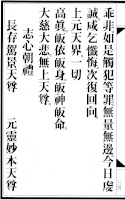 乖非如是觸犯等罪無量無邊今日虔
誠咸乞懺悔次復回向
上元天界一切
高眞皈依皈身皈神皈命
大慈大悲無上天尊
志心朝禮
長存駕景天尊　元靈妙本天尊